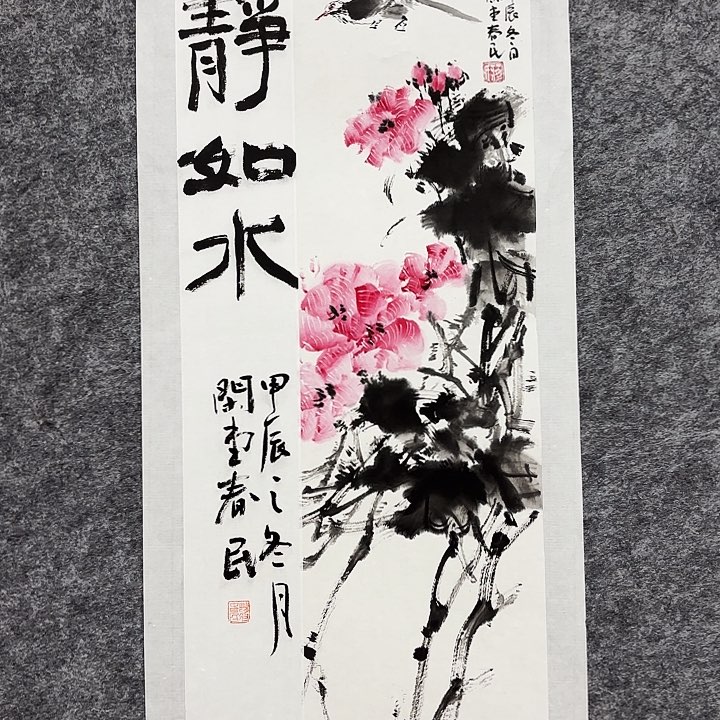 靜如水
甲辰之冬月
閑堂春民
辰冬月
堂春民